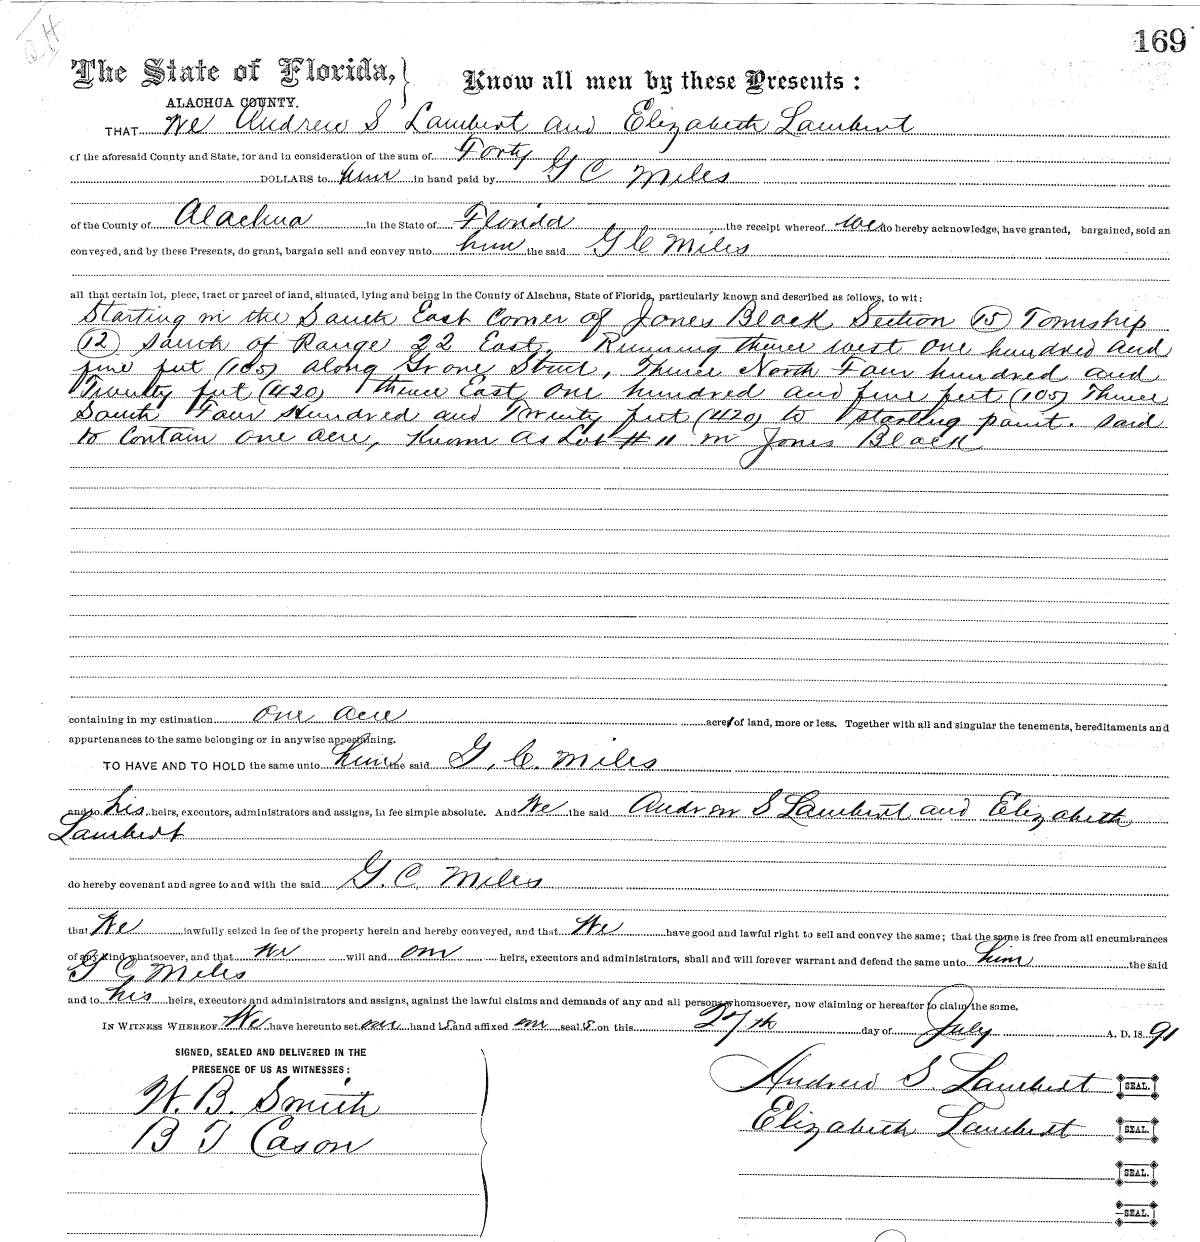 169
The State of Florida, Know all men by these Presents:
ALACHUA COUNTY.
THAT We Andrew S Lambert and Elizabeth Lambert
of the aforesaid County and State, for and in consideration of the sum of Forty
DOLLARS to him in hand paid by G C Miles
of the County of Alachua in the State of Florida the receipt whereof we do hereby acknowledge, have granted, bargained, sold an
conveyed, and by these Presents, do grant, bargain sell and convey unto him the said G C Miles
all that certain lot, piece, tract or parcel of land, situated, lying and being in the County of Alachua, State of Florida, particularly known and described as follows, to wit:
Starting in the South East Corner of Jones Block Section 15 Township
12 South of Range 22 East, Running thence west one hundred and
five feet (105) along Grove Street, Thence North Four hundred and
Twenty feet (420) thence East one hundred and five feet (105) Thence
South Four Hundred and Twenty feet (420) to starting point. Said
to Contain one acre, Known as Lot # 11 in Jones Block
containing in my estimation one acre acres of land, more or less. Together with all and singular the tenements, hereditaments and
appurtenances to the same belonging or in anywise appertaining.
TO HAVE AND TO HOLD the same unto him the said G. C. Miles
and to his heirs, executors, administrators and assigns, in fee simple absolute. And We the said Andrew S Lambert and Elizabeth
Lambert
do hereby covenant and agree to and with the said G. C. Miles
that We lawfully seized in fee of the property herein and hereby conveyed, and that We have good and lawful right to sell and convey the same; that the same is free from all encumbrances
of any kind whatsoever, and that we will and our heirs, executors and administrators, shall and will forever warrant and defend the same unto him the said
G C Miles
and to his heirs, executors and administrators and assigns, against the lawful claims and demands of any and all persons whomsoever, now claiming or hereafter to claim the same.
IN WITNESS WHEREOF We have hereunto set our hand s and affixed our seal s on this 27th day of July A. D. 18 91
SIGNED, SEALED AND DELIVERED IN THE
PRESENCE OF US AS WITNESSES:
W. B. Smith
B T Cason
Andrew S. Lambert SEAL.
Elizabeth Lambert SEAL.
SEAL.
SEAL.